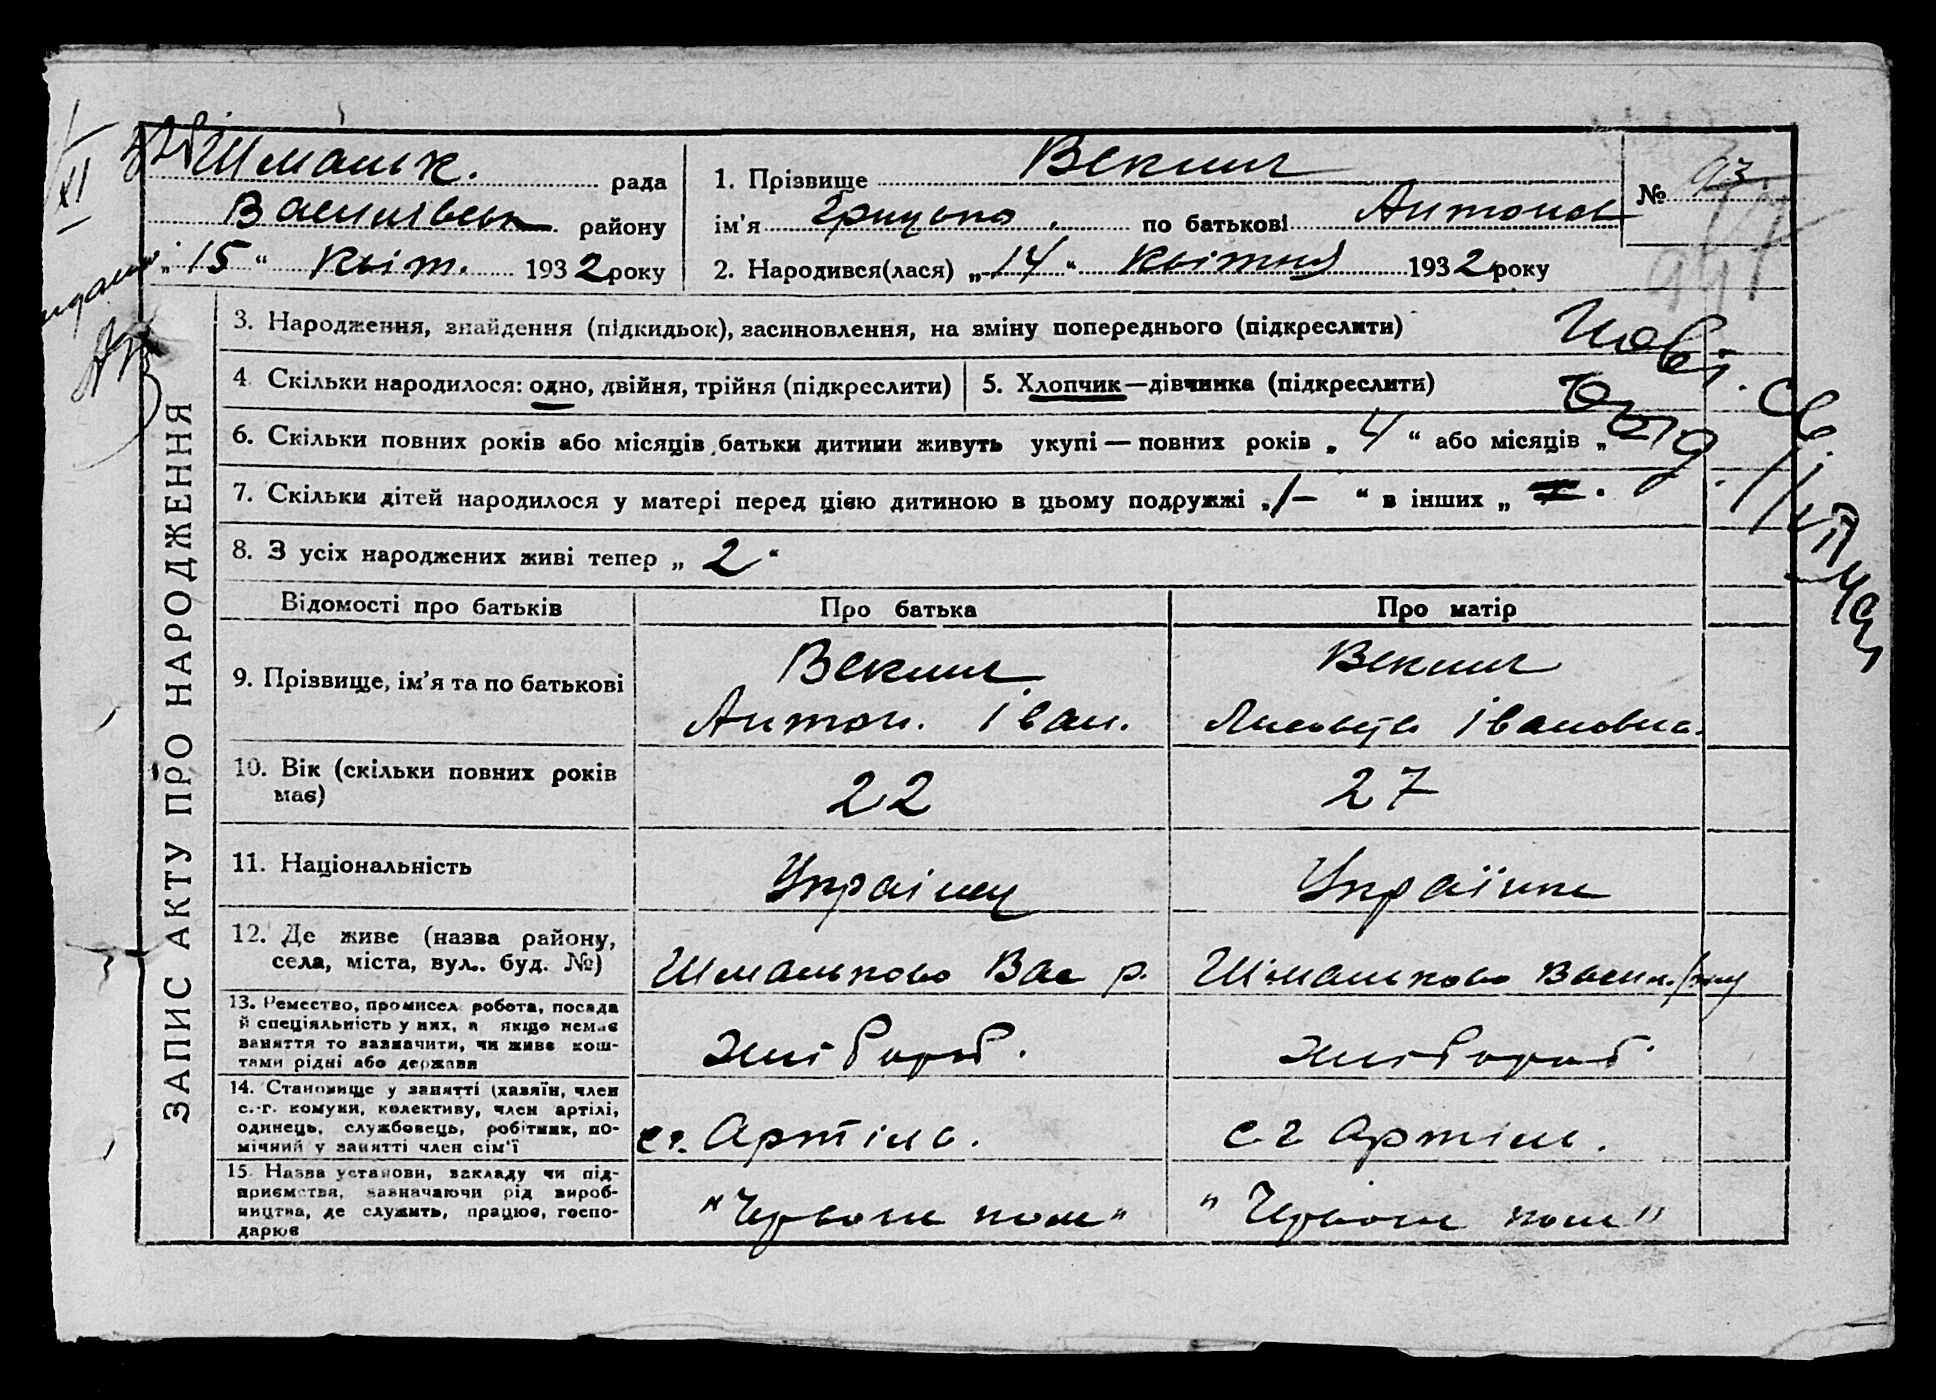 Шмальк. рада
Василівськ району
„ 15 “ Квіт. 1932 року
1. Прізвище Векшин
ім'я Грицько по батькові Антонов
2. Народився(лася) „ 14 “ Квітня 1932 року
№ 93
ЗАПИС АКТУ ПРО НАРОДЖЕННЯ
3. Народження, знайдення (підкидьок), засиновлення, на зміну попереднього (підкреслити)
4. Скільки народилося: одно, двійня, трійня (підкреслити)
5. Хлопчик—дівчинка (підкреслити)
6. Скільки повних років або місяців батьки дитини живуть укупі — повних років „ 4 “ або місяців „
7. Скільки дітей народилося у матері перед цією дитиною в цьому подружжі „ 1 “ в інших „
8. З усіх народжених живі тепер „ 2 “
Відомості про батьків Про батька Про матір
9. Прізвище, ім'я та по батькові
Векшин
Антон. Іван.
Векшин
Івановна.
10. Вік (скільки повних років має)
22
27
11. Національність
Українец
Українка
12. Де живе (назва району,
села, міста, вул.. буд. №)
Шмальково Вас р.
Шмальково Васил.
13. Ремество, промисел робота, посада
й спеціяльність у них, а якщо немає
заняття то зазначити, чи живе кош-
тами рідні або держави
Хлібороб.
Хлібороб.
14. Становище у занятті (хазяїн, член
с.-г. комуни, колективу, член артілі,
одинець, службовець, робітник, по-
мічний у занятті член сім'ї
с.г. Артіль.
с.г Артіль.
15. Назва установи, закладу чи під-
приємства, зазначаючи рід вироб-
ництва, де служить, працює, госпо-
дарює
„Червоне поле“
„Червоне поле“